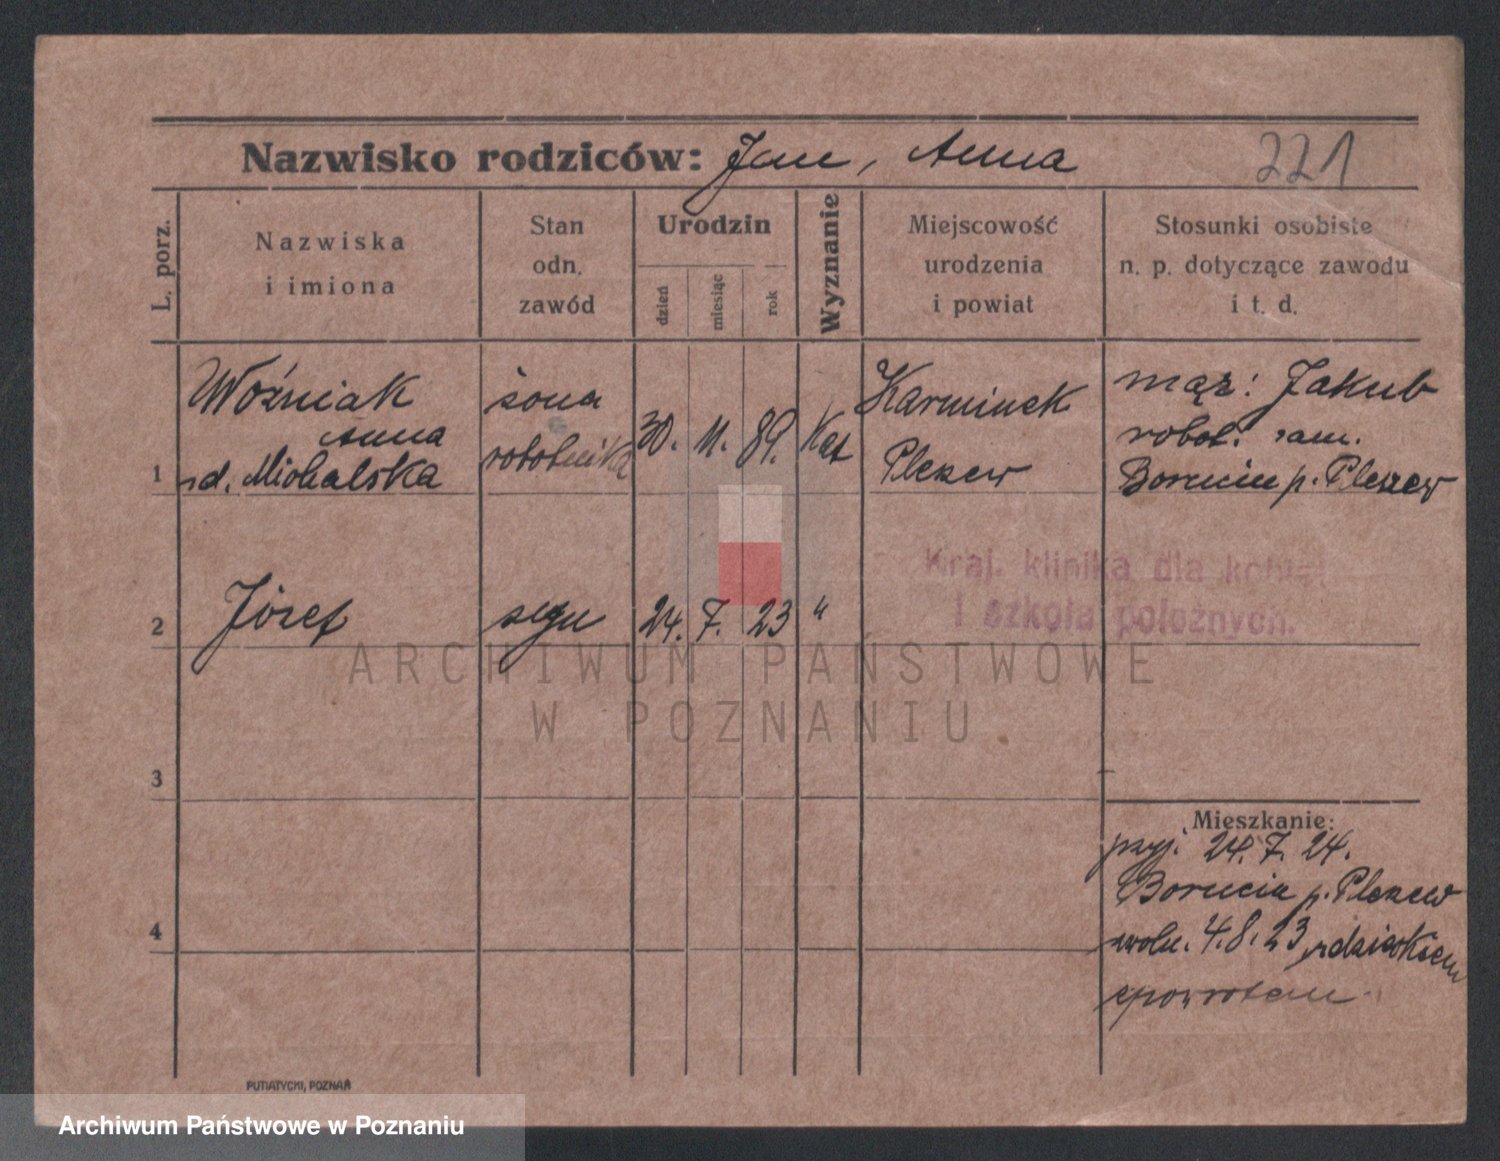 Nazwisko rodziców: Jan, Anna 221
L. porz.
Nazwiska
i imiona
Stan
odn.
zawód
Urodzin
dzień
miesiąc
rok
Wyznanie
Miejscowość
urodzenia
i powiat
Stosunki osobiste
n. p. dotyczące zawodu
i t. d.
1
Woźniak
Anna
rd. Michalska
żona
robotnika
30. 11. 89. Kat
Karminek
Pleszew
mąż: Jakub
robot. zam.
Borucin p. Pleszew
Kraj. klinika dla kobiet
i szkoła położnych.
2
Józef
syn
24. 7. 23 "
ARCHIWUM PAŃSTWOWE
W POZNANIU
3
Mieszkanie:
przyj. 24. 7. 24.
Borucin p. Pleszew
zwoln. 4. 8. 23 z dzieckiem
zpowrotem
4
PUTIATYCKI, POZNAŃ
Archiwum Państwowe w Poznaniu